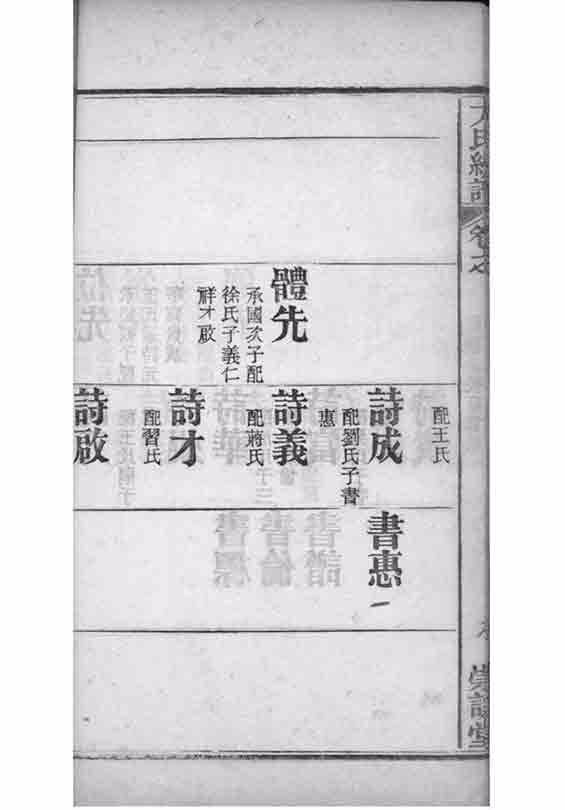 氏
卷之
體先
承國次子配
徐氏子義仁
祥才啟
配王氏
詩成
配劉氏子書
惠
詩義
配蔣氏
詩才
配習氏
詩啟
書惠